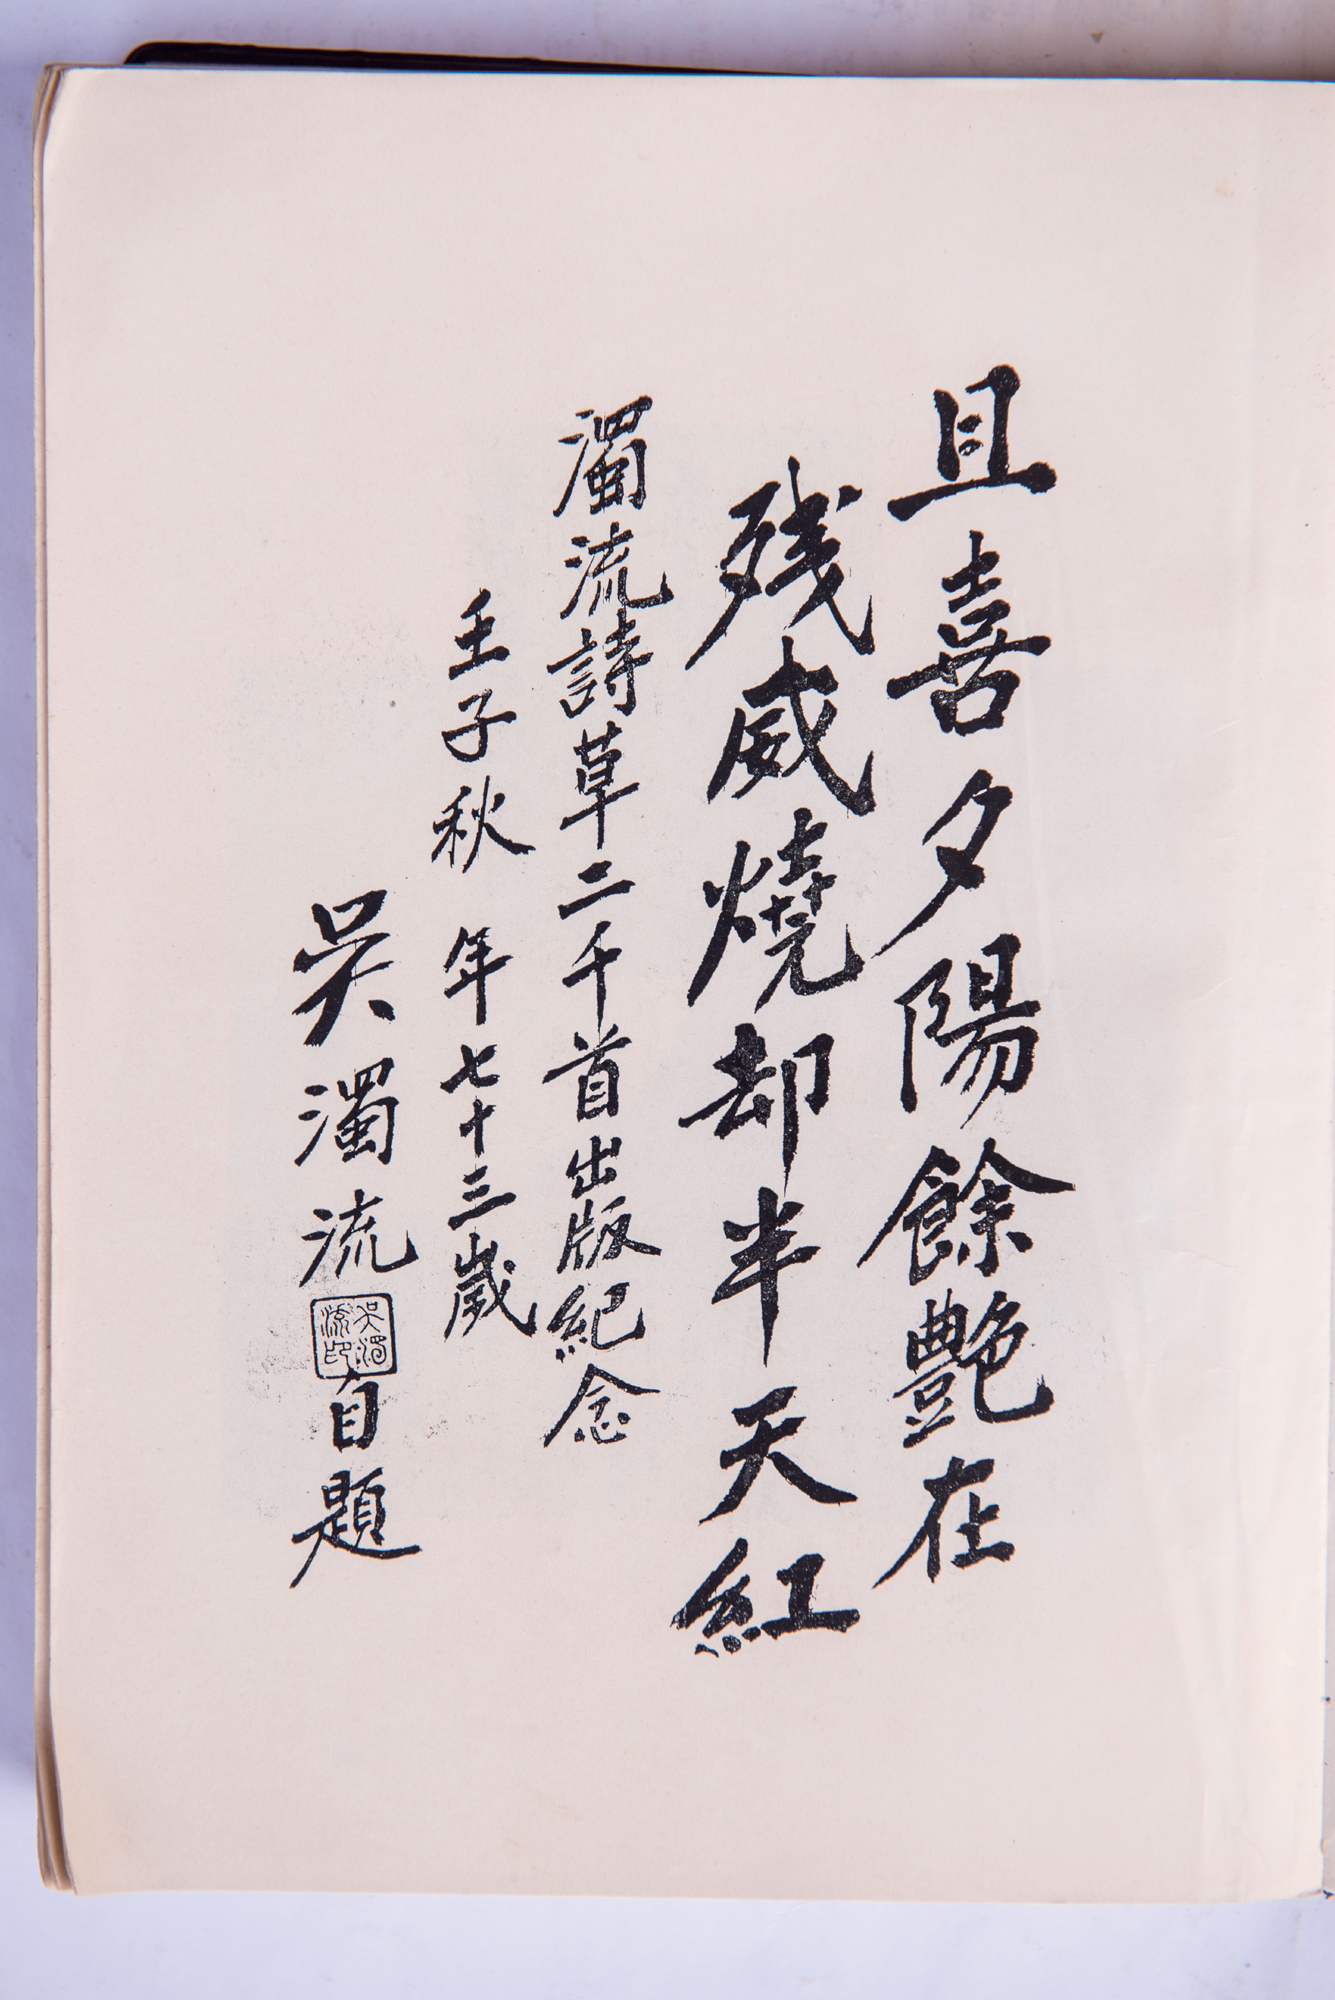 且喜夕陽餘艷在
残威燒却半天紅
濁流詩草二千首出版紀念
壬子秋 年七十三歲
吳濁流自題
吳濁流印